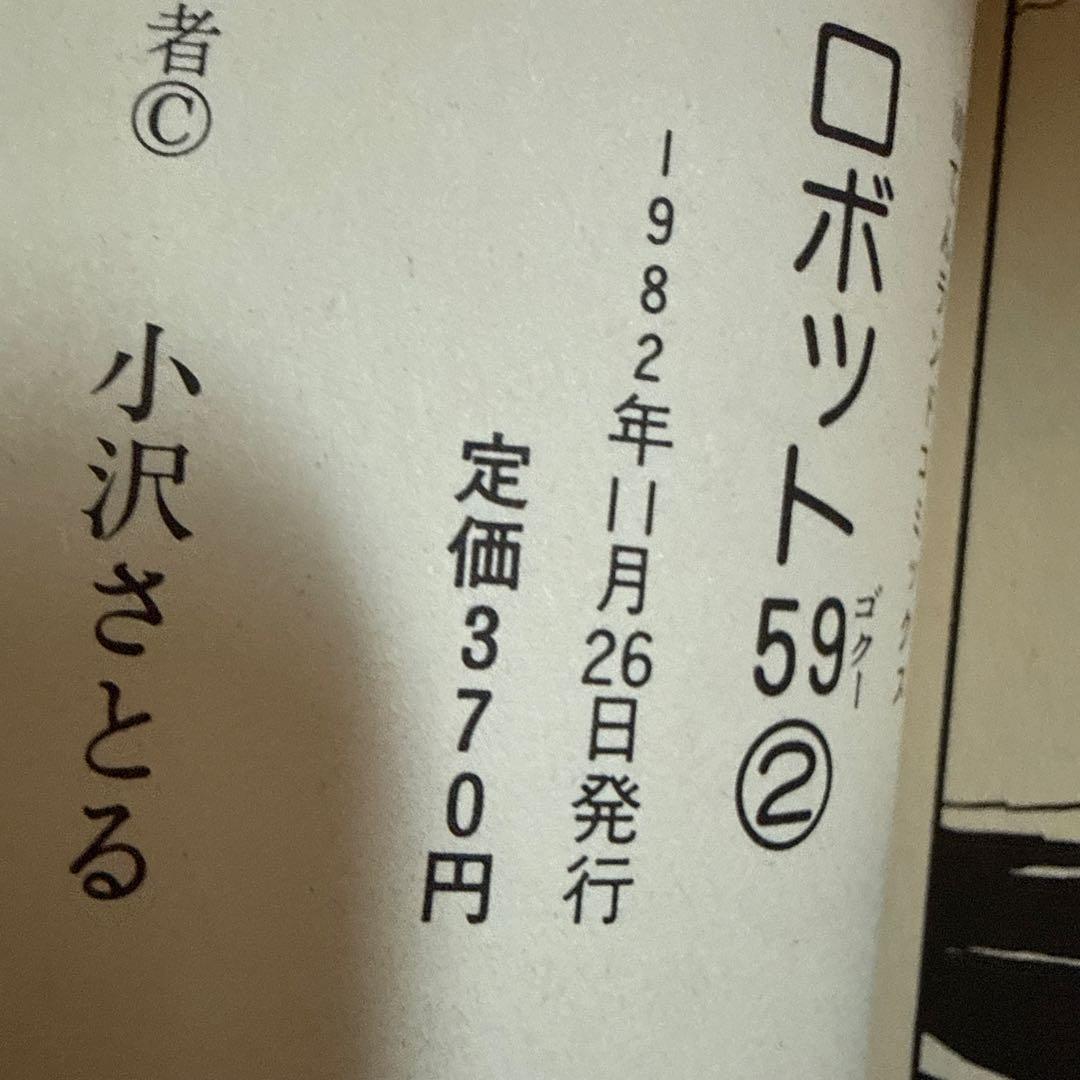 ロボット59②
ゴクー
1982年11月26日発行
定価370円
者© 小沢さとる